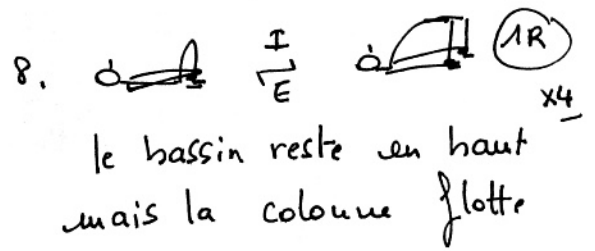 8. I E 1R
x4
le bassin reste en haut
mais la colonne flotte